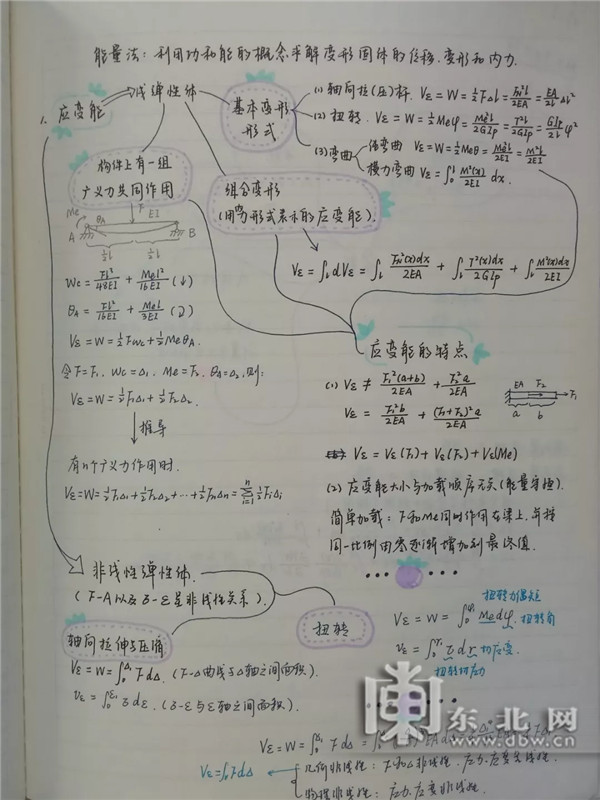 能量法：利用功和能的概念求解变形固体的位移、变形和内力.
1. 应变能
线弹性体
基本变形形式
(1) 轴向拉(压)杆. Vε = W = ½FΔl = F_N²l/2EA = EA/2l Δl²
(2) 扭转. Vε = W = ½Meφ = Me²l/2GIp = T²l/2GIp = GIp/2l φ²
(3) 弯曲 纯弯曲 Vε = W = ½Meθ = Me²l/2EI = M²l/2EI
横力弯曲 Vε = ∫₀ˡ M²(x)/2EI dx.
构件上有一组
广义力共同作用
Me θA F EI
A B
½l ½l
Wc = Fl³/48EI + Mel²/16EI (↓)
θA = Fl²/16EI + Mel/3EI
Vε = W = ½FWc + ½MeθA.
令F=F₁, Wc=Δ₁, Me=F₂, θA=Δ₂, 则:
Vε = W = ½F₁Δ₁ + ½F₂Δ₂.
推导
有n个广义力作用时.
Vε = W = ½F₁Δ₁ + ½F₂Δ₂ + ··· + ½FnΔn = Σ(i=1, n) ½FiΔi
组合变形
(用内力形式表示的应变能).
Vε = ∫l dVε = ∫l F_N²(x)dx/2EA + ∫l T²(x)dx/2GIp + ∫l M²(x)dx/2EI
应变能的特点
(1) Vε ≠ F₁²(a+b)/2EA + F₂²a/2EA
Vε = F₁²b/2EA + (F₁+F₂)²a/2EA
EA F₂ F₁
a b
Vε(F₁) + Vε(F₂) + Vε(Me)
(2) 应变能大小与加载顺序无关(能量守恒).
简单加载：F和Me同时作用在梁上, 并按
同一比例由零逐渐增加到最终值.
非线性弹性体.
扭转
扭转力偶矩
Vε = W = ∫₀^φ₁ Me dφ 扭转角
切应变
扭转切应力
轴向拉伸与压缩
Vε = W = ∫₀^Δ₁ F dΔ. (F-Δ曲线与Δ轴之间面积).
vε = ∫₀^ε₁ σ dε. (σ-ε与ε轴之间面积).
Vε = W = ∫₀^Δ₁ F dΔ
几何非线性：F和Δ非线性, 应力、应变线性.
物理非线性：应力、应变非线性.
东北网
www.dbw.cn